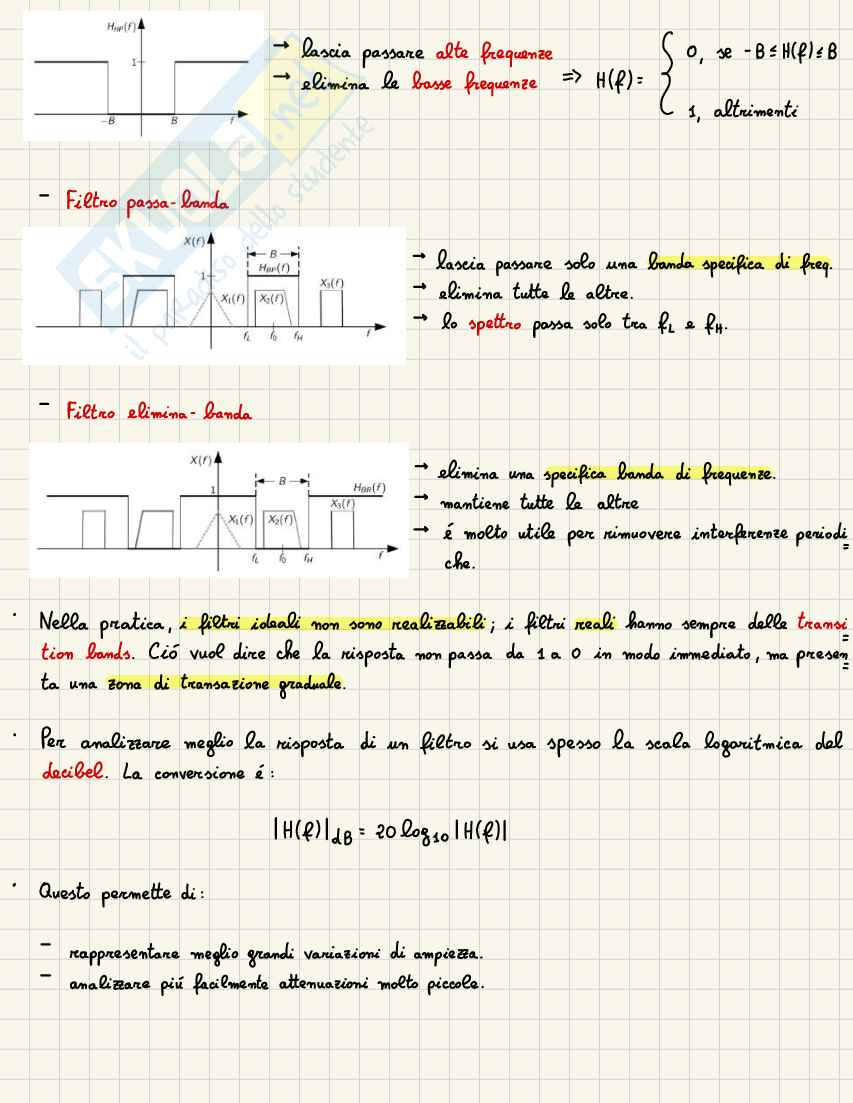 H_HP(f)
1
-B B f
→ lascia passare alte frequenze
→ elimina le basse frequenze => H(f) = { 0, se -B ≤ H(f) ≤ B
1, altrimenti
- Filtro passa-banda
X(f)
B
H_BP(f)
1
X1(f) X2(f) X3(f)
fL f0 fH f
→ lascia passare solo una banda specifica di freq.
→ elimina tutte le altre.
→ lo spettro passa solo tra fL e fH.
SKUOLA.net
il paradiso dello studente
- Filtro elimina-banda
X(f)
B
1
H_BR(f)
X1(f) X2(f) X3(f)
fL f0 fH f
→ elimina una specifica banda di frequenze.
→ mantiene tutte le altre
→ é molto utile per rimuovere interferenze periodi=
che.
· Nella pratica, i filtri ideali non sono realizzabili; i filtri reali hanno sempre delle transi=
tion bands. Ció vuol dire che la risposta non passa da 1 a 0 in modo immediato, ma presen=
ta una zona di transazione graduale.
· Per analizzare meglio la risposta di un filtro si usa spesso la scala logaritmica del
decibel. La conversione é:
|H(f)|dB = 20 log10 |H(f)|
· Questo permette di:
- rappresentare meglio grandi variazioni di ampiezza.
- analizzare piú facilmente attenuazioni molto piccole.